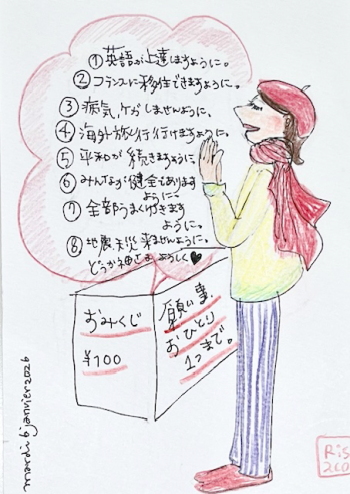 ① 英語が上達しますように。
② フランスに移住できますように。
③ 病気、ケガしませんように、
④ 海外旅行行けますように。
⑤ 平和が続きますように
⑥ みんなが健全であります
ように。
⑦ 全部うまくいきます
ように。
⑧ 地震、災来ませんように。
どうか神さまよろしく♥
おみくじ
¥100
願い事、
おひとり
1つまで。
mardi 6 janvier 2026
Ris